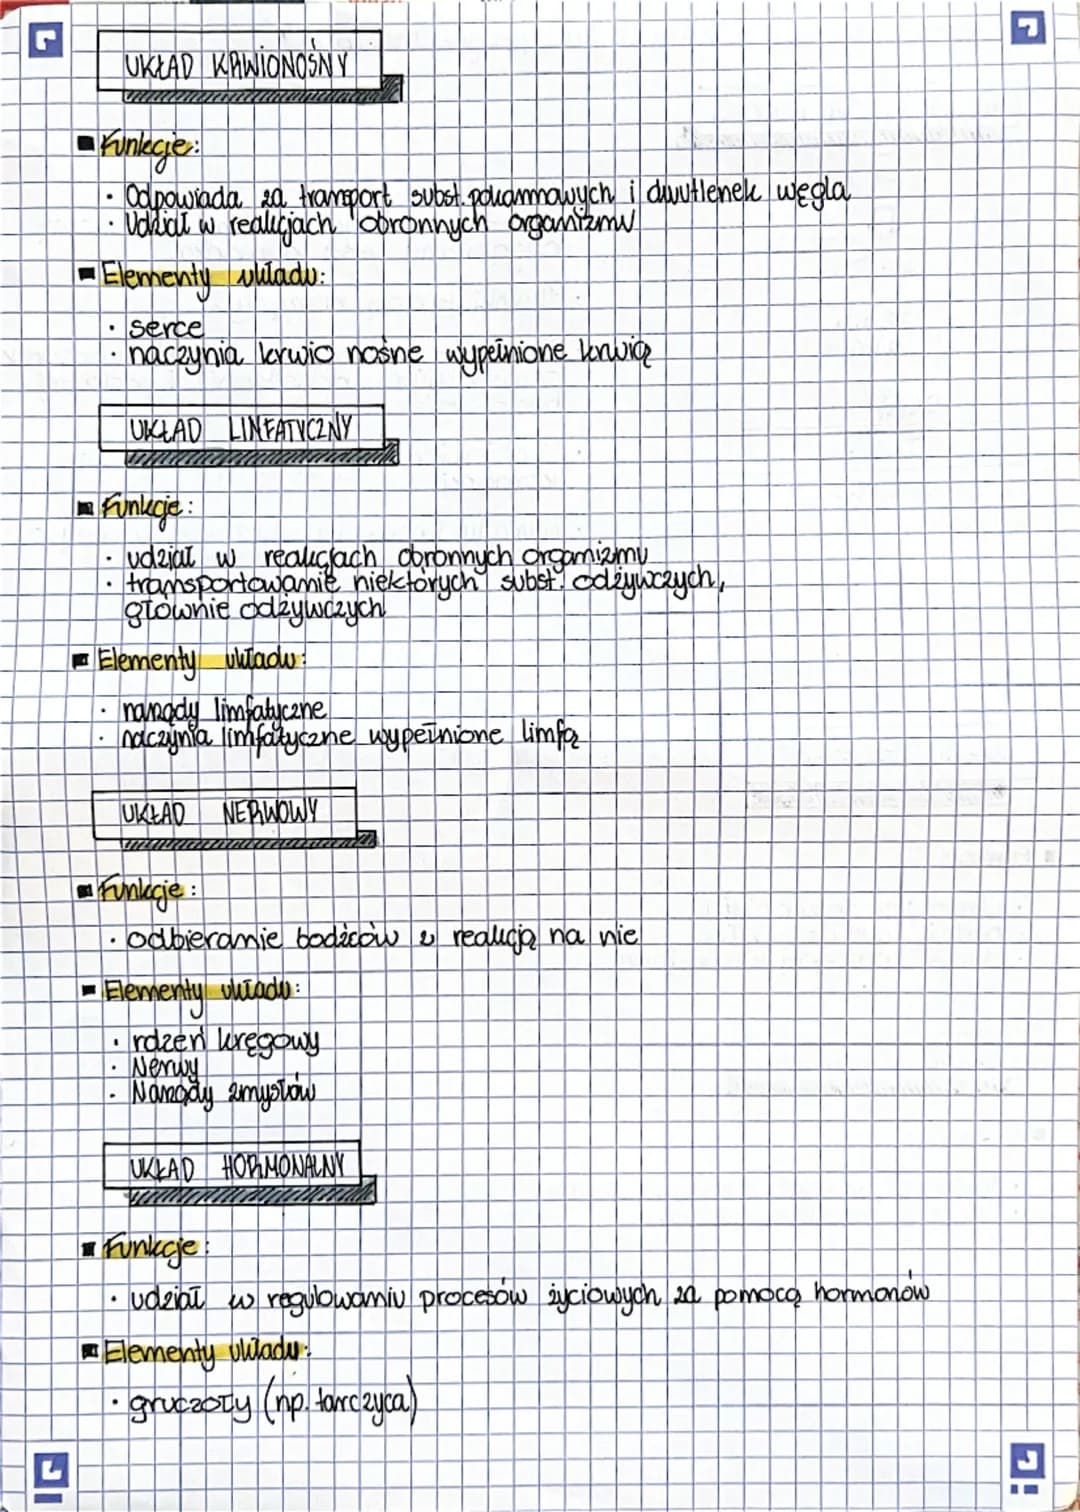 UKŁAD KRWIONOŚNY
Funkcje:
· Odpowiada za transport subst. pokarmowych i dwutlenek węgla
· Udział w reakcjach obronnych organizmu
Elementy układu:
· serce
· naczynia krwio nośne wypełnione krwią
UKŁAD LIMFATYCZNY
Funkcje:
· udział w reakcjach obronnych organizmu
· transportowanie niektórych subst. odżywczych,
głownie odżywczych
Elementy układu:
· narządy limfatyczne
· naczynia limfatyczne wypełnione limfą
UKŁAD NERWOWY
Funkcje:
· odbieranie bodźców z reakcją na nie
Elementy układu:
· rdzeń kręgowy
· Nerwy
· Narządy zmysłów
UKŁAD HORMONALNY
Funkcje:
· udział w regulowaniu procesów życiowych za pomocą hormonów
Elementy układu:
· gruczoły (np. tarczyca)